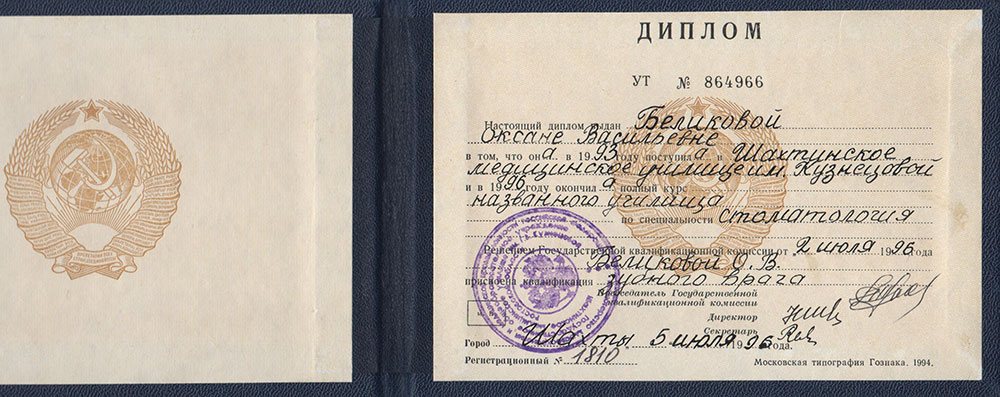 ДИПЛОМ
УТ № 864966
Настоящий диплом выдан Беликовой
Оксане Васильевне
в том, что она в 1993 году поступила в Шахтинское
медицинское училище им. Кузнецовой
и в 1996 году окончила полный курс
названного училища
по специальности Стоматология
Решением Государственной квалификационной комиссии от 2 июля 1996 года
Беликовой О. В.
присвоена квалификация зубного врача
Председатель Государственной
квалификационной комиссии
Директор
Секретарь
Город Шахты 5 июля 1996 года.
Регистрационный № 1810
Московская типография Гознака. 1994.